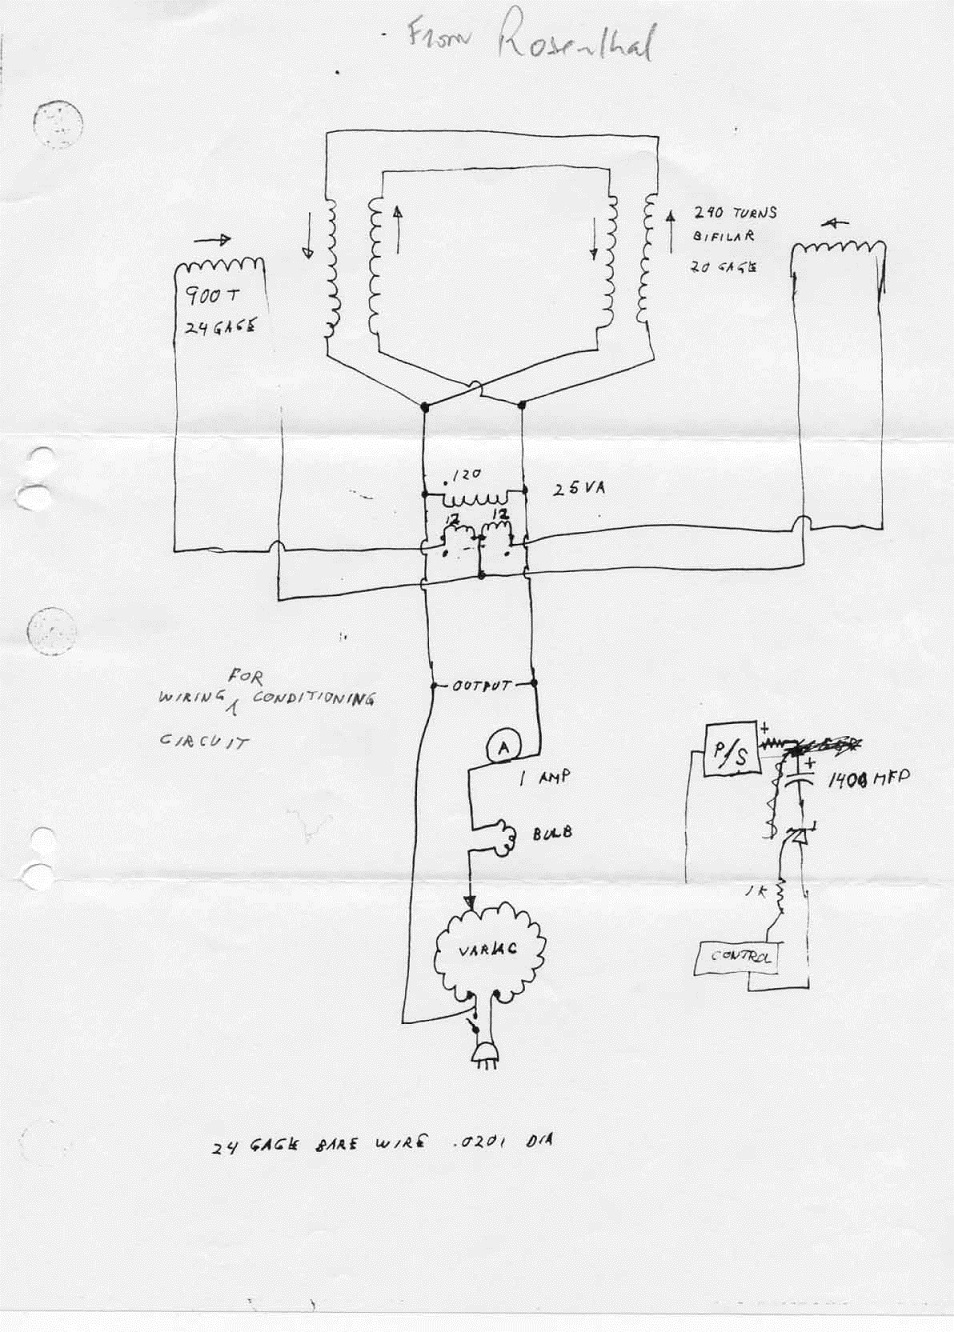 From Rosenthal
240 TURNS
BIFILAR
20 GAGE
900 T
24 GAGE
.120
25VA
12 12
FOR
WIRING CONDITIONING
CIRCUIT
OUTPUT
A
1 AMP
BULB
VARIAC
P/S
+
+
1400 MFD
1K
CONTROL
24 GAGE BARE WIRE .0201 DIA